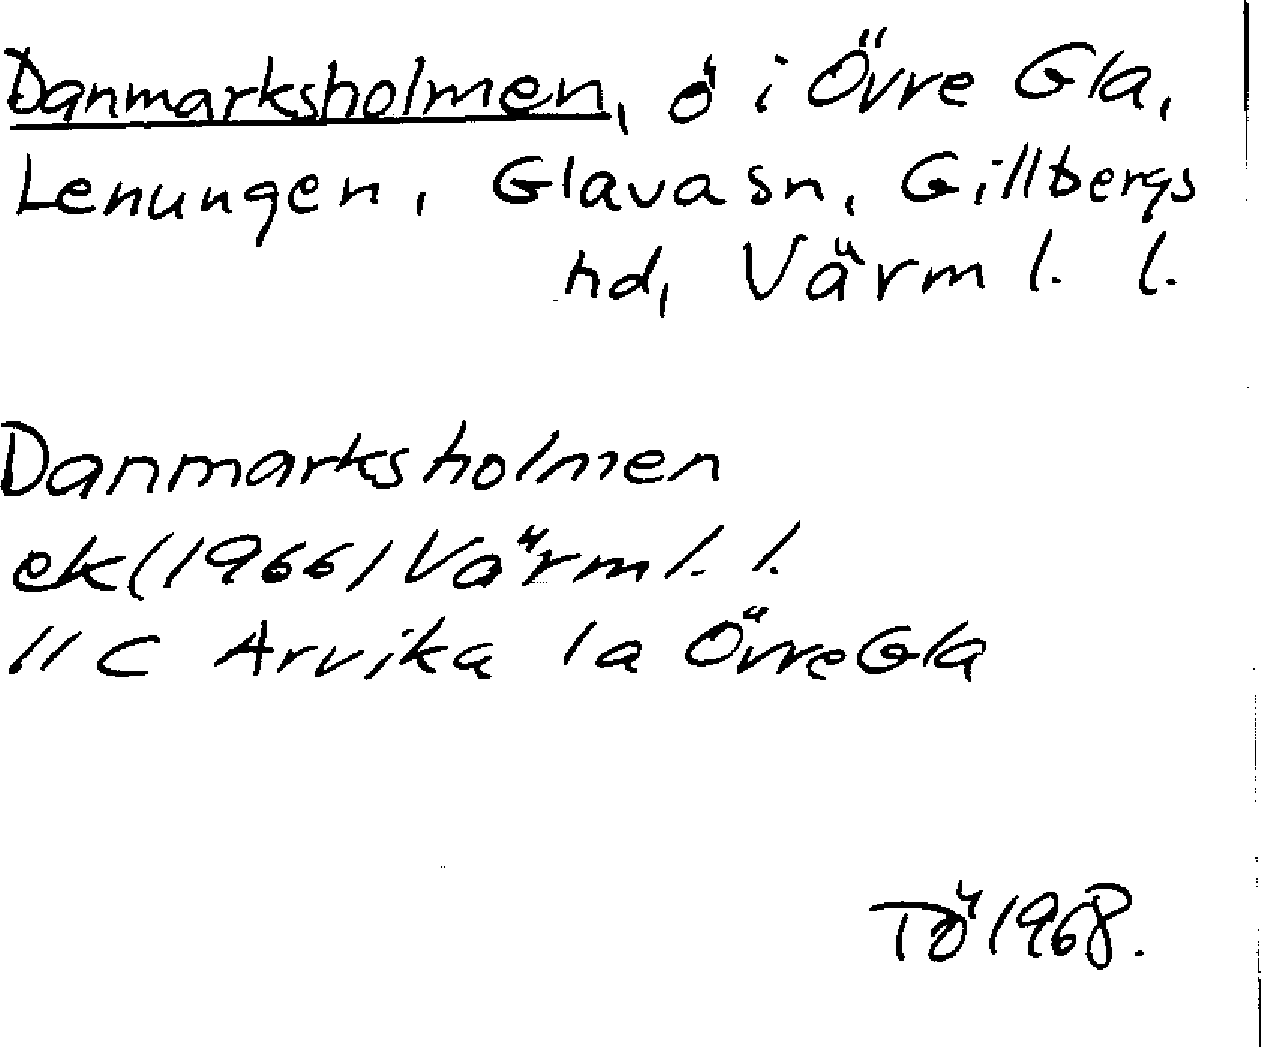 Danmarksholmen, ö i Övre Gla,
Lenungen, Glava sn, Gillbergs
hd, Värml. l.
Danmarksholmen
ek (1966) Värml. l.
11 C Arvika 1a Övre Gla
TÖ 1968.